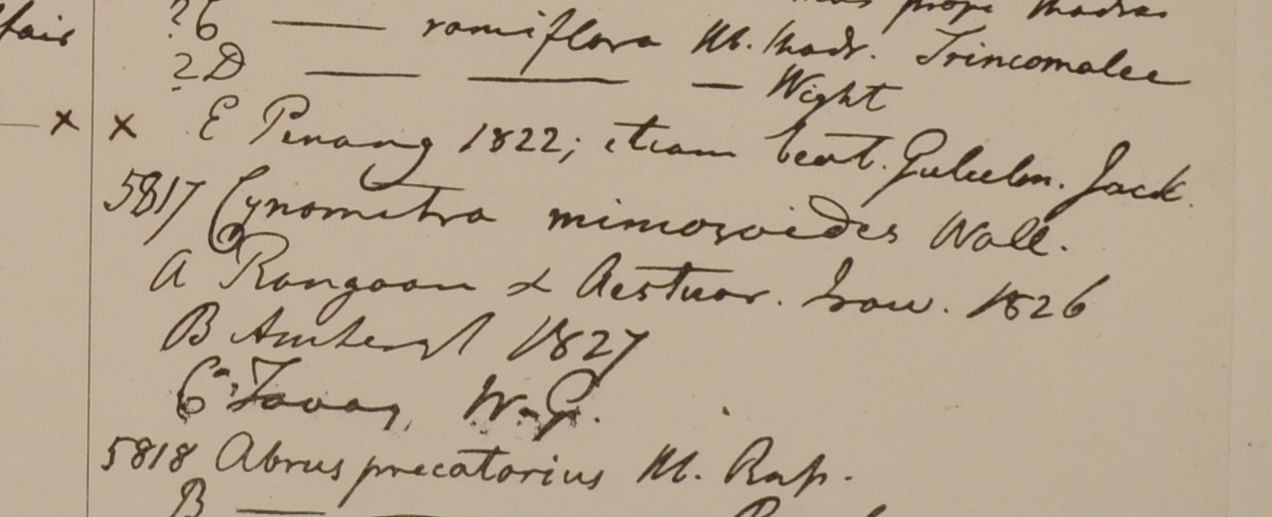 prope Madras
fair ?C — ramiflora Hb. Madr. Trincomalee
?D — — — Wight
— x x E Penang 1822; etiam beat. Gulielm. Jack.
5817 Cynometra mimosoides Wall.
A Rangoon & Aestuar. Iraw. 1826
B Amherst 1827
C Tavoy, W.G.
5818 Abrus precatorius Hb. Rup.
B —